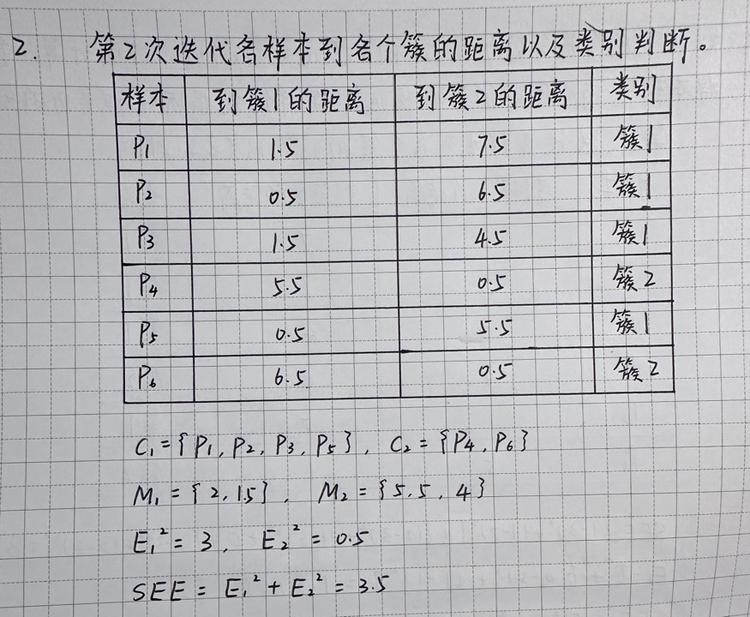 2. 第2次迭代各样本到各个簇的距离以及类别判断。
样本 到簇1的距离 到簇2的距离 类别
P1 1.5 7.5 簇1
P2 0.5 6.5 簇1
P3 1.5 4.5 簇1
P4 5.5 0.5 簇2
P5 0.5 5.5 簇1
P6 6.5 0.5 簇2
C₁={P₁,P₂,P₃,P₅}, C₂={P₄,P₆}
M₁={2,1.5}, M₂={5.5,4}
E₁²=3, E₂²=0.5
SEE=E₁²+E₂²=3.5